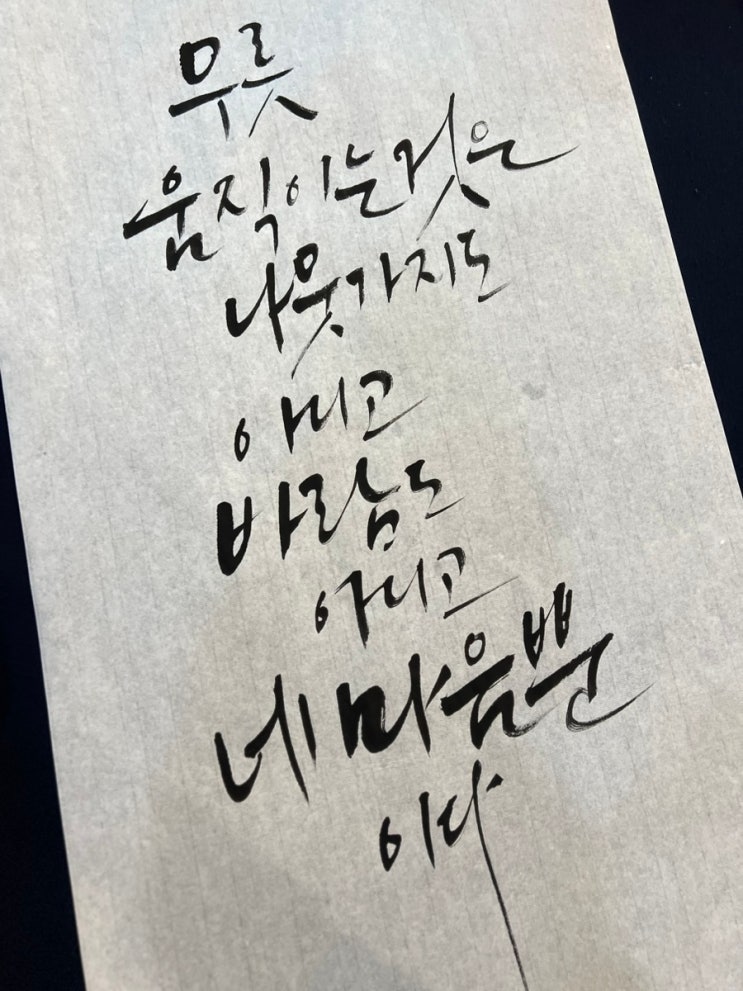 무릇
움직이는것은
나뭇가지도
아니고
바람도
아니고
네 마음뿐
이다